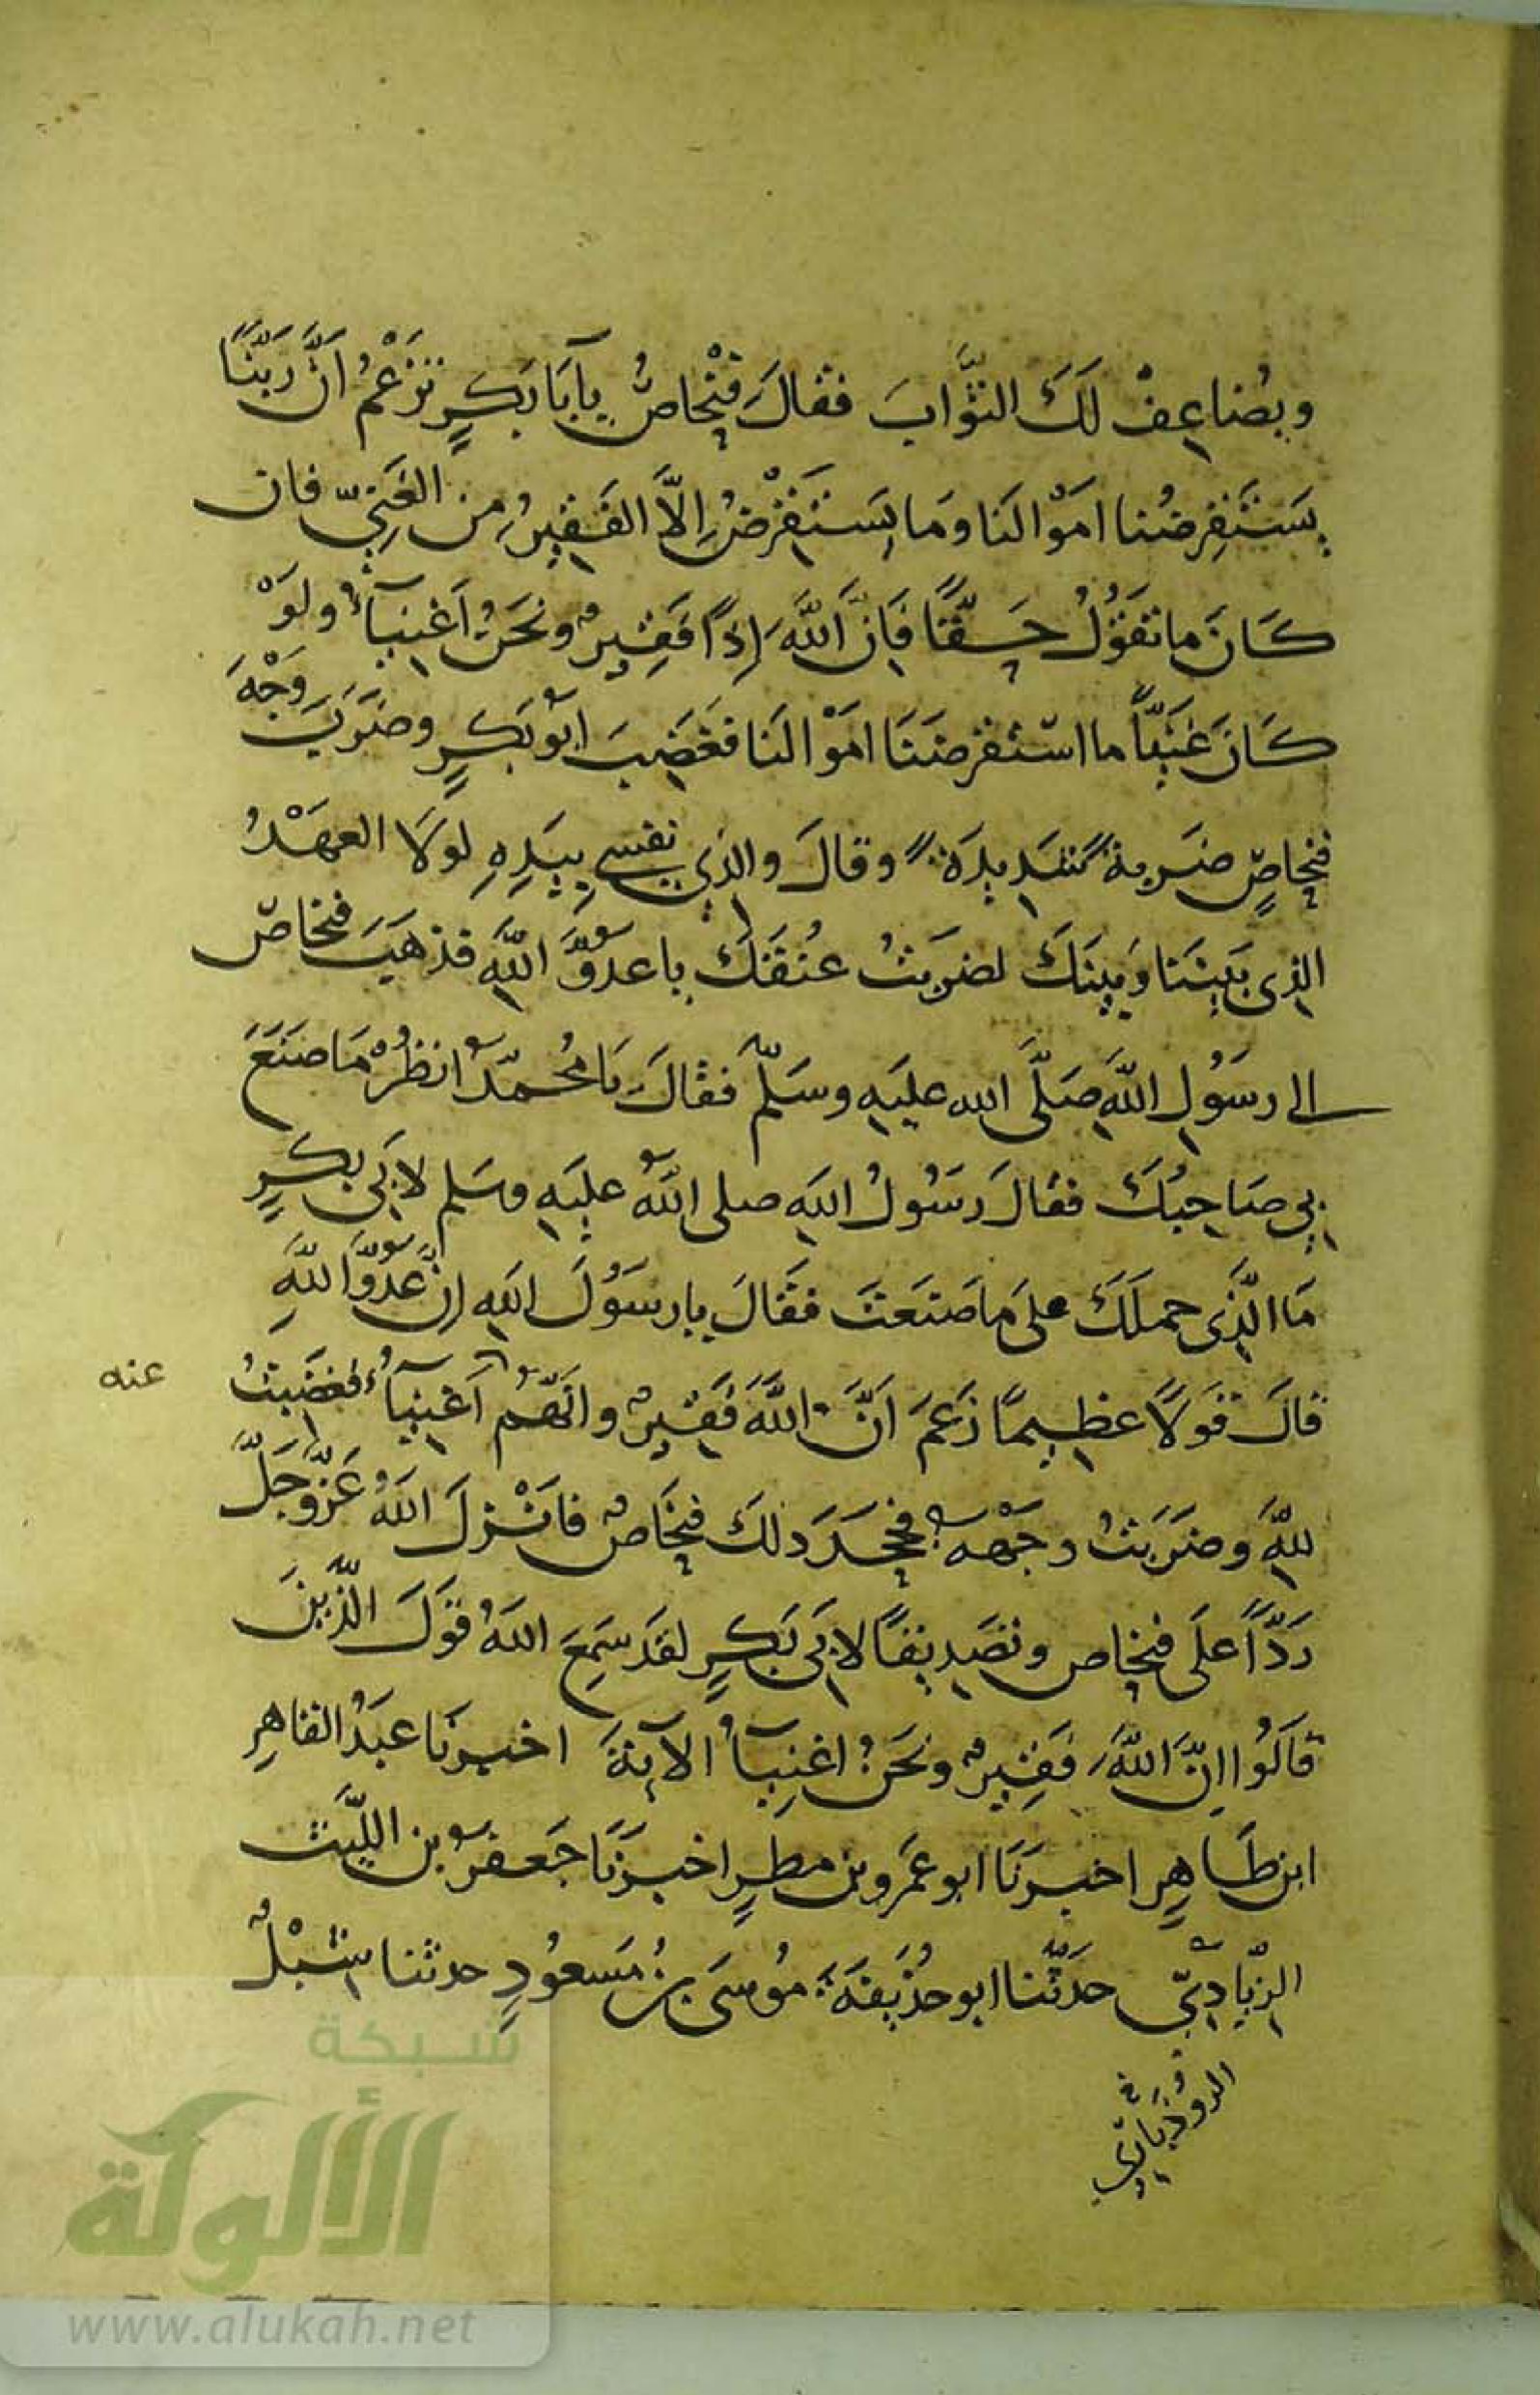 ويُضاعِفْ لَكَ الثَّوَابَ فقالَ فِنْحاصُ يآ أبَا بَكرٍ تَزْعُمُ أنَّ رَبَّنَا
يَسْتَقْرِضُنا أمْوَالَنَا وَمَا يَسْتَقْرِضُ إِلَّا الفَقِيرُ مِنَ الغَنِيّ فان
كَانَ ما تَقُوْلُ حَقًّا فَإنَّ اللَّهَ إِذًا فَقِيرٌ ونَحْنُ أغْنِيَآءُ ولَوْ
كَانَ غَنِيّاً ما اسْتقرضَنَا امْوَالَنا فغَضِبَ ابُو بَكرٍ وضَرَبَ وَجْهَ
فنحاصٍ ضَربةً شَدِيدَةً وقالَ والذِي نفسِي بِيَدِهِ لولَا العهْدُ
الذِى بَيْنَنَا وَبَيْنَكَ لضرَبتُ عُنُقَكَ يا عدُوَّ اللَّهِ فذهَبَ فنحاصّ
الى رسُولِ اللَّهِ صَلَّى الله عليَهِ وسَلّمَ فقالَ يَا مُحمّدُ انظُرْ مَا صَنَعَ
بِي صَاحِبُكَ فقالَ رسُولُ اللَهِ صلى اللَّهُ علَيهِ وسَلم لابَى بكرٍ
مَا الَّذِى حملَكَ على مَا صَنَعتَ فقَالَ يا رسُولَ اللَهِ إنَّ عدُوَّ اللَّهِ
قالَ قولًا عظِيمًا زعَمَ أنَّ اللَّهَ فَقِيرٌ وانَّهُمْ أغْنِيآءُ فغضِبتُ
عنه
للَّهِ وضَرَبتُ وجْهَهُ فجحَدَ ذلكَ فنحَاصٌ فانْزلَ اللَهُ عَزَّ وجَلَّ
رَدًّا عَلَى فنحاص وتصَدِيقًا لابَى بَكرٍ لقَد سَمِعَ اللَهُ قوَلَ الَّذِينَ
قالُوا إنَّ اللَّهَ فَقِيرٌ ونَحْنُ اغنِيَآُ الآيَةَ اخبرنَا عبَدُ القاهِرِ
ابن طَاهِرٍ اخبرَنَا ابو عَمرو بن مطرٍ اخبرَنَا جَعفرُ بن اللَّيث
الزِّيادِيّ حدَّثَنا ابو حُذَيفَةَ مُوسَى بنُ مَسعُودٍ حدثنا شِبْلٌ
الروذباري
شبكة
الألوكة
www.alukah.net